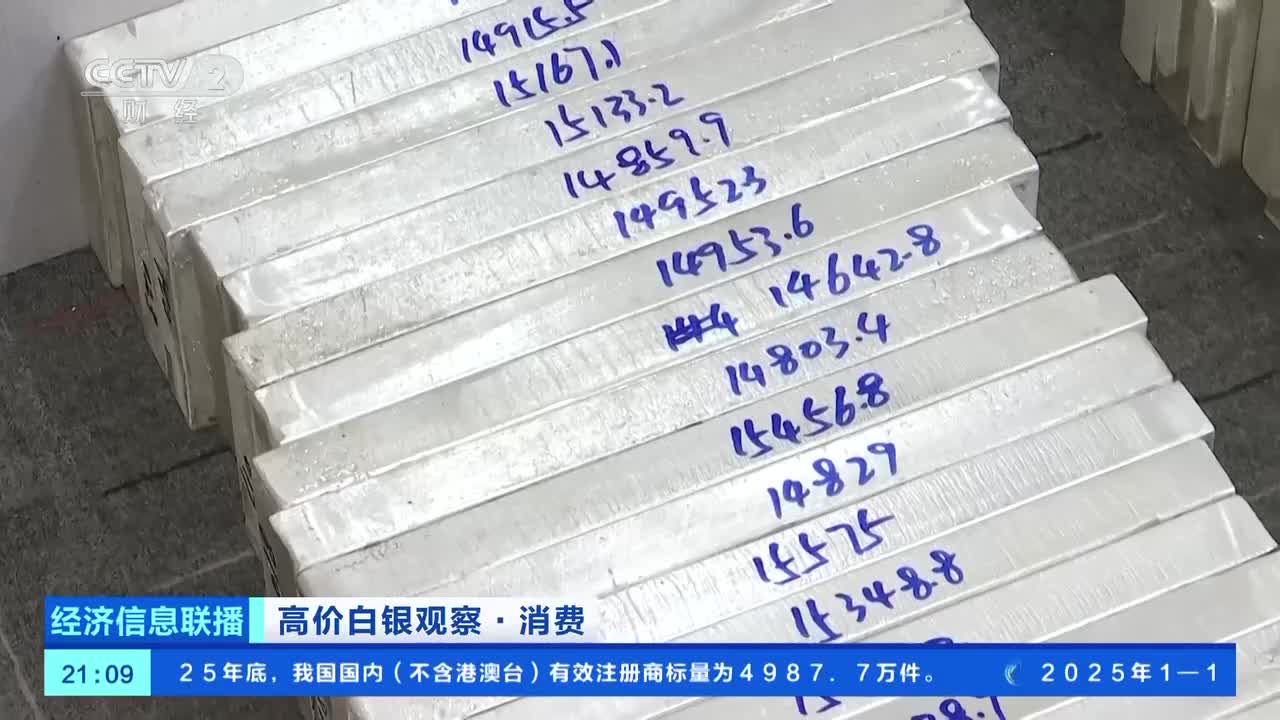 CCTV 2
财 经
14915.5
15167.1
15133.2
14859.9
149523
14953.6
14642.8
14803.4
15456.8
14829
15575
15348.8
经济信息联播
高价白银观察·消费
21:09
25年底，我国国内（不含港澳台）有效注册商标量为4987．7万件。
2025年1—1